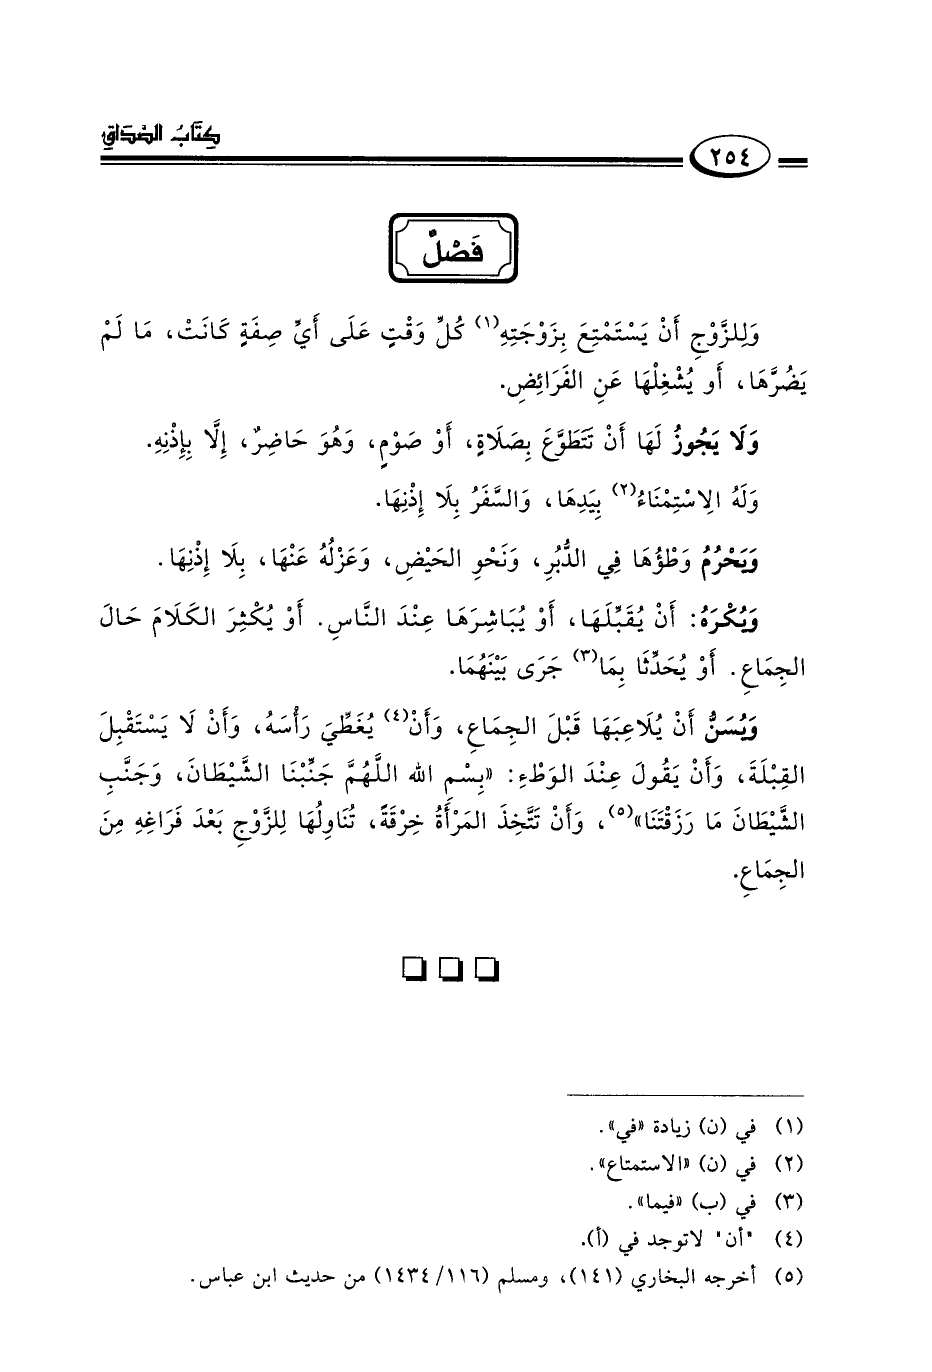 كِتَابُ الصَّدَاقِ
٢٥٤
فَصْلٌ
وَلِلزَّوْجِ أَنْ يَسْتَمْتِعَ بِزَوْجَتِهِ(١) كُلَّ وَقْتٍ عَلَى أَيِّ صِفَةٍ كَانَتْ، مَا لَمْ
يَضُرَّهَا، أَو يُشْغِلْهَا عَنِ الفَرَائِضِ.
وَلَا يَجُوزُ لَهَا أَنْ تَتَطَوَّعَ بِصَلَاةٍ، أَوْ صَوْمٍ، وَهُوَ حَاضِرٌ، إِلَّا بِإِذْنِهِ.
وَلَهُ الِاسْتِمْنَاءُ(٢) بِيَدِهَا، وَالسَّفَرُ بِلَا إِذْنِهَا.
وَيَحْرُمُ وَطْؤُهَا فِي الدُّبُرِ، وَنَحْوِ الحَيْضِ، وَعَزْلُهُ عَنْهَا، بِلَا إِذْنِهَا.
وَيُكْرَهُ: أَنْ يُقَبِّلَهَا، أَوْ يُبَاشِرَهَا عِنْدَ النَّاسِ. أَوْ يُكْثِرَ الكَلَامَ حَالَ
الجِمَاعِ. أَوْ يُحَدِّثَا بِمَا(٣) جَرَى بَيْنَهُمَا.
وَيُسَنُّ أَنْ يُلَاعِبَهَا قَبْلَ الجِمَاعِ، وَأَنْ(٤) يُغَطِّيَ رَأْسَهُ، وَأَنْ لَا يَسْتَقْبِلَ
القِبْلَةَ، وَأَنْ يَقُولَ عِنْدَ الوَطْءِ: «بِسْمِ الله اللَّهُمَّ جَنِّبْنَا الشَّيْطَانَ، وَجَنِّبِ
الشَّيْطَانَ مَا رَزَقْتَنَا»(٥)، وَأَنْ تَتَّخِذَ المَرْأَةُ خِرْقَةً، تُنَاوِلُهَا لِلزَّوْجِ بَعْدَ فَرَاغِهِ مِنَ
الجِمَاعِ.
(١) في (ن) زيادة «في».
(٢) في (ن) «الاستمتاع».
(٣) في (ب) «فيما».
(٤) "أن" لاتوجد في (أ).
(٥) أخرجه البخاري (١٤١)، ومسلم (١١٦/ ١٤٣٤) من حديث ابن عباس.